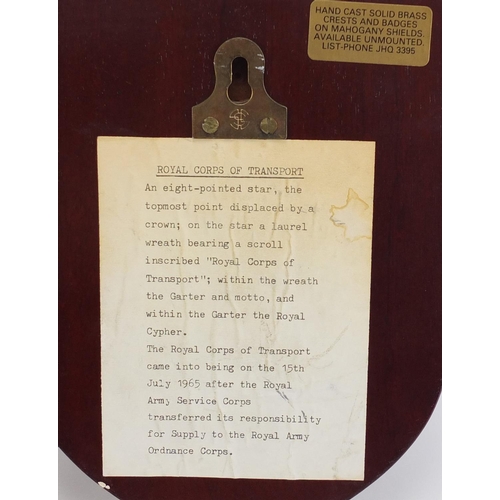 HAND CAST SOLID BRASS
CRESTS AND BADGES
ON MAHOGANY SHIELDS.
AVAILABLE UNMOUNTED.
LIST-PHONE JHQ 3395
ROYAL CORPS OF TRANSPORT
An eight-pointed star, the
topmost point displaced by a
crown; on the star a laurel
wreath bearing a scroll
inscribed "Royal Corps of
Transport"; within the wreath
the Garter and motto, and
within the Garter the Royal
Cypher.
The Royal Corps of Transport
came into being on the 15th
July 1965 after the Royal
Army Service Corps
transferred its responsibility
for Supply to the Royal Army
Ordnance Corps.